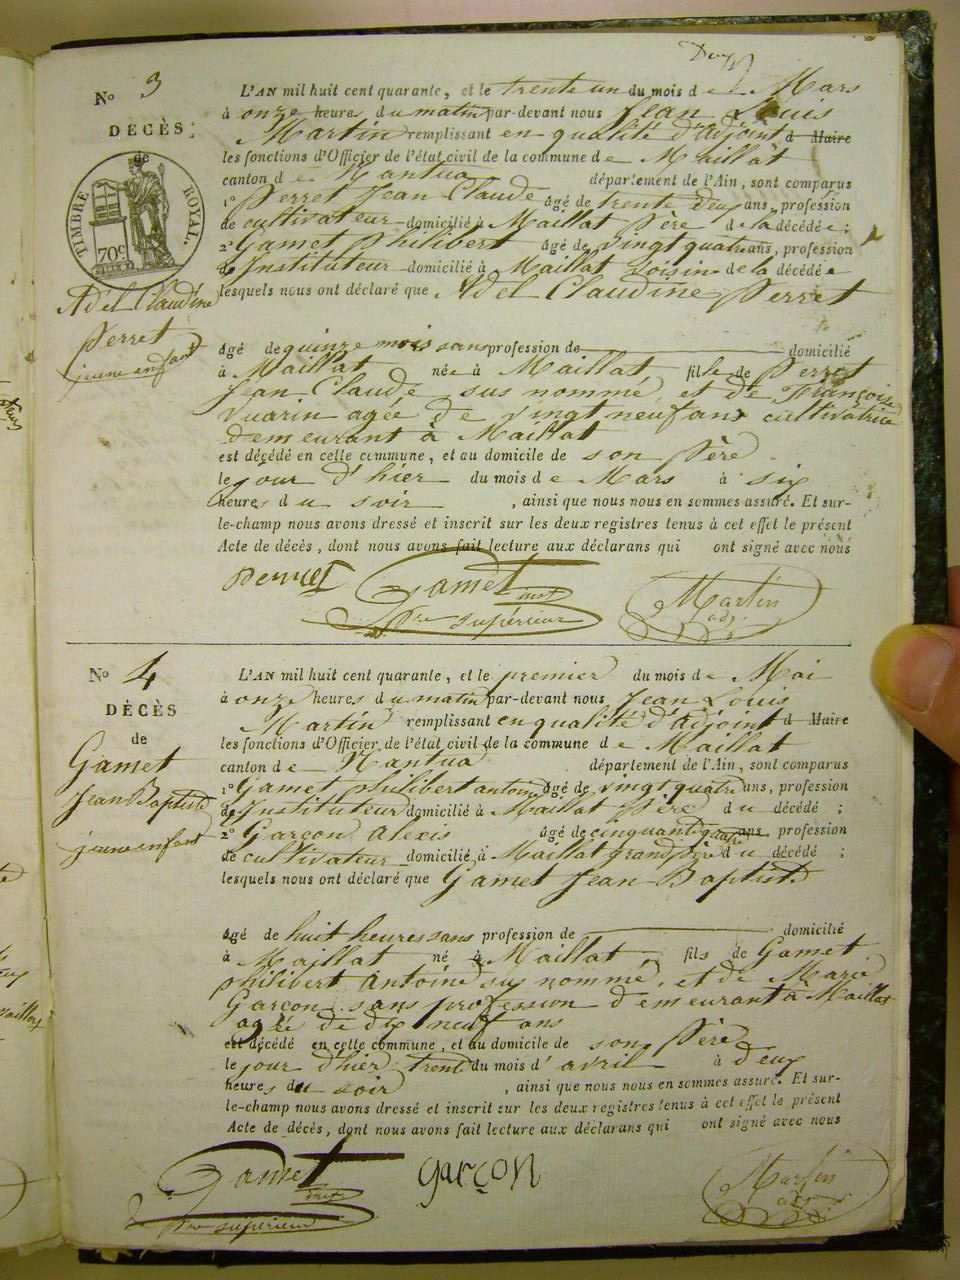 N° 3
DÉCÈS
de
TIMBRE ROYAL.
70c
Adel Claudine
Perret
jeune enfant
L'AN mil huit cent quarante, et le trente un du mois de Mars
à onze heures du matin par-devant nous Jean Louis
Martin remplissant en qualité d'adjoint d Maire
les fonctions d'Officier de l'état civil de la commune de Maillat
canton de Nantua département de l'Ain, sont comparus
1° Perret Jean Claude âgé de trente deux ans, profession
de cultivateur domicilié à Maillat Père de la décédée ;
2° Gamet Philibert âgé de vingt quatre ans, profession
de Instituteur domicilié à Maillat voisin de la décédée
lesquels nous ont déclaré que Adel Claudine Perret
âgé de quinze mois sans profession de domicilié
à Maillat née à Maillat fille de Perret
Jean Claude sus nommé, et de Françoise
Vuarin agée de vingt neuf ans cultivatrice
demeurant à Maillat
est décédé en celle commune, et au domicile de son Père
le jour d'hier du mois de Mars à six
heures du soir , ainsi que nous nous en sommes assuré. Et sur-
le-champ nous avons dressé et inscrit sur les deux registres tenus à cet effet le présent
Acte de décès, dont nous avons fait lecture aux déclarans qui ont signé avec nous
Perret Gamet inst
bre supérieur
Martin
adj.
N° 4
DÉCÈS
de
Gamet
Jean Baptiste
jeune enfant
L'AN mil huit cent quarante, et le premier du mois de Mai
à onze heures du matin par-devant nous Jean Louis
Martin remplissant en qualité d'adjoint d Maire
les fonctions d'Officier de l'état civil de la commune de Maillat
canton de Nantua département de l'Ain, sont comparus
1° Gamet Philibert antoine âgé de vingt quatre ans, profession
de Instituteur domicilié à Maillat Père du décédé ;
2° Garçon Alexis âgé de cinquante quatre ans profession
de cultivateur domicilié à Maillat grand Père du décédé ;
lesquels nous ont déclaré que Gamet Jean Baptiste
âgé de huit heures sans profession de domicilié
à Maillat né à Maillat, fils de Gamet
philibert Antoine sus nommé, et de Marie
Garçon sans profession demeurant à Maillat
agée de dix neuf ans
est décédé en celle commune, et au domicile de son Père
le jour d'hier trente du mois d'avril à deux
heures du soir , ainsi que nous nous en sommes assuré. Et sur-
le-champ nous avons dressé et inscrit sur les deux registres tenus à cet effet le présent
Acte de décès, dont nous avons fait lecture aux déclarans qui ont signé avec nous
Gamet inst
bre supérieur
garçon
Martin
adj